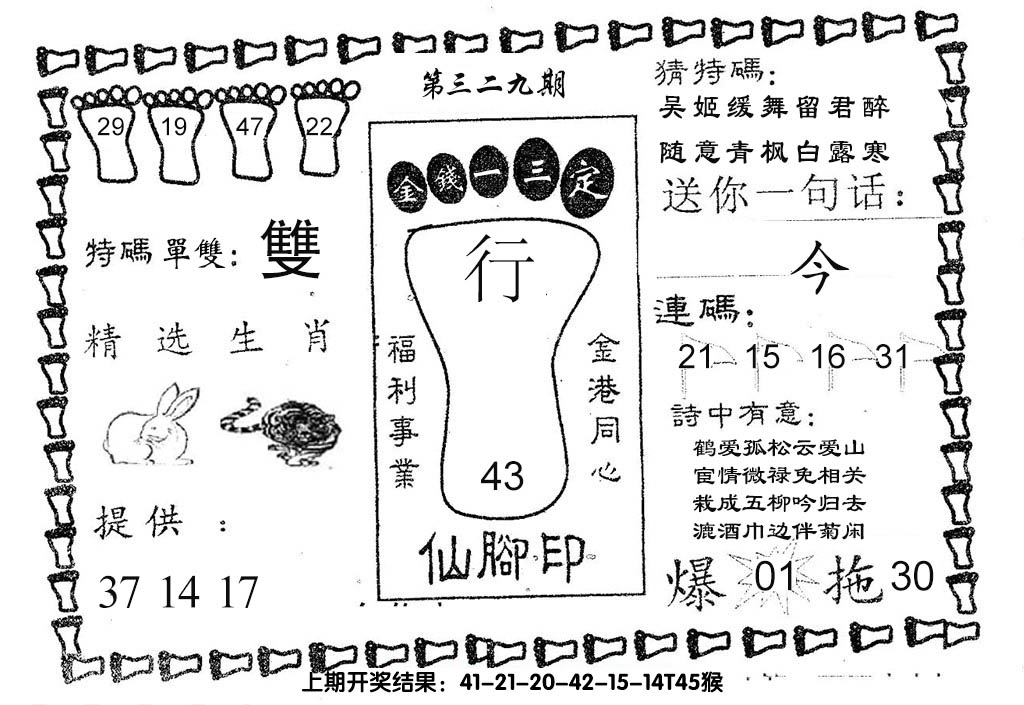 第三二九期
29 19 47 22
特碼單雙：雙
精选生肖
提供：
37 14 17
金錢一三定
行
福利事業
金港同心
43
仙腳印
猜特碼：
吴姬缓舞留君醉
随意青枫白露寒
送你一句话：
今
連碼：
21 15 16 31
詩中有意：
鹤爱孤松云爱山
宦情微禄免相关
栽成五柳吟归去
漉酒巾边伴菊闲
爆 01 拖 30
上期开奖结果：41-21-20-42-15-14T45猴